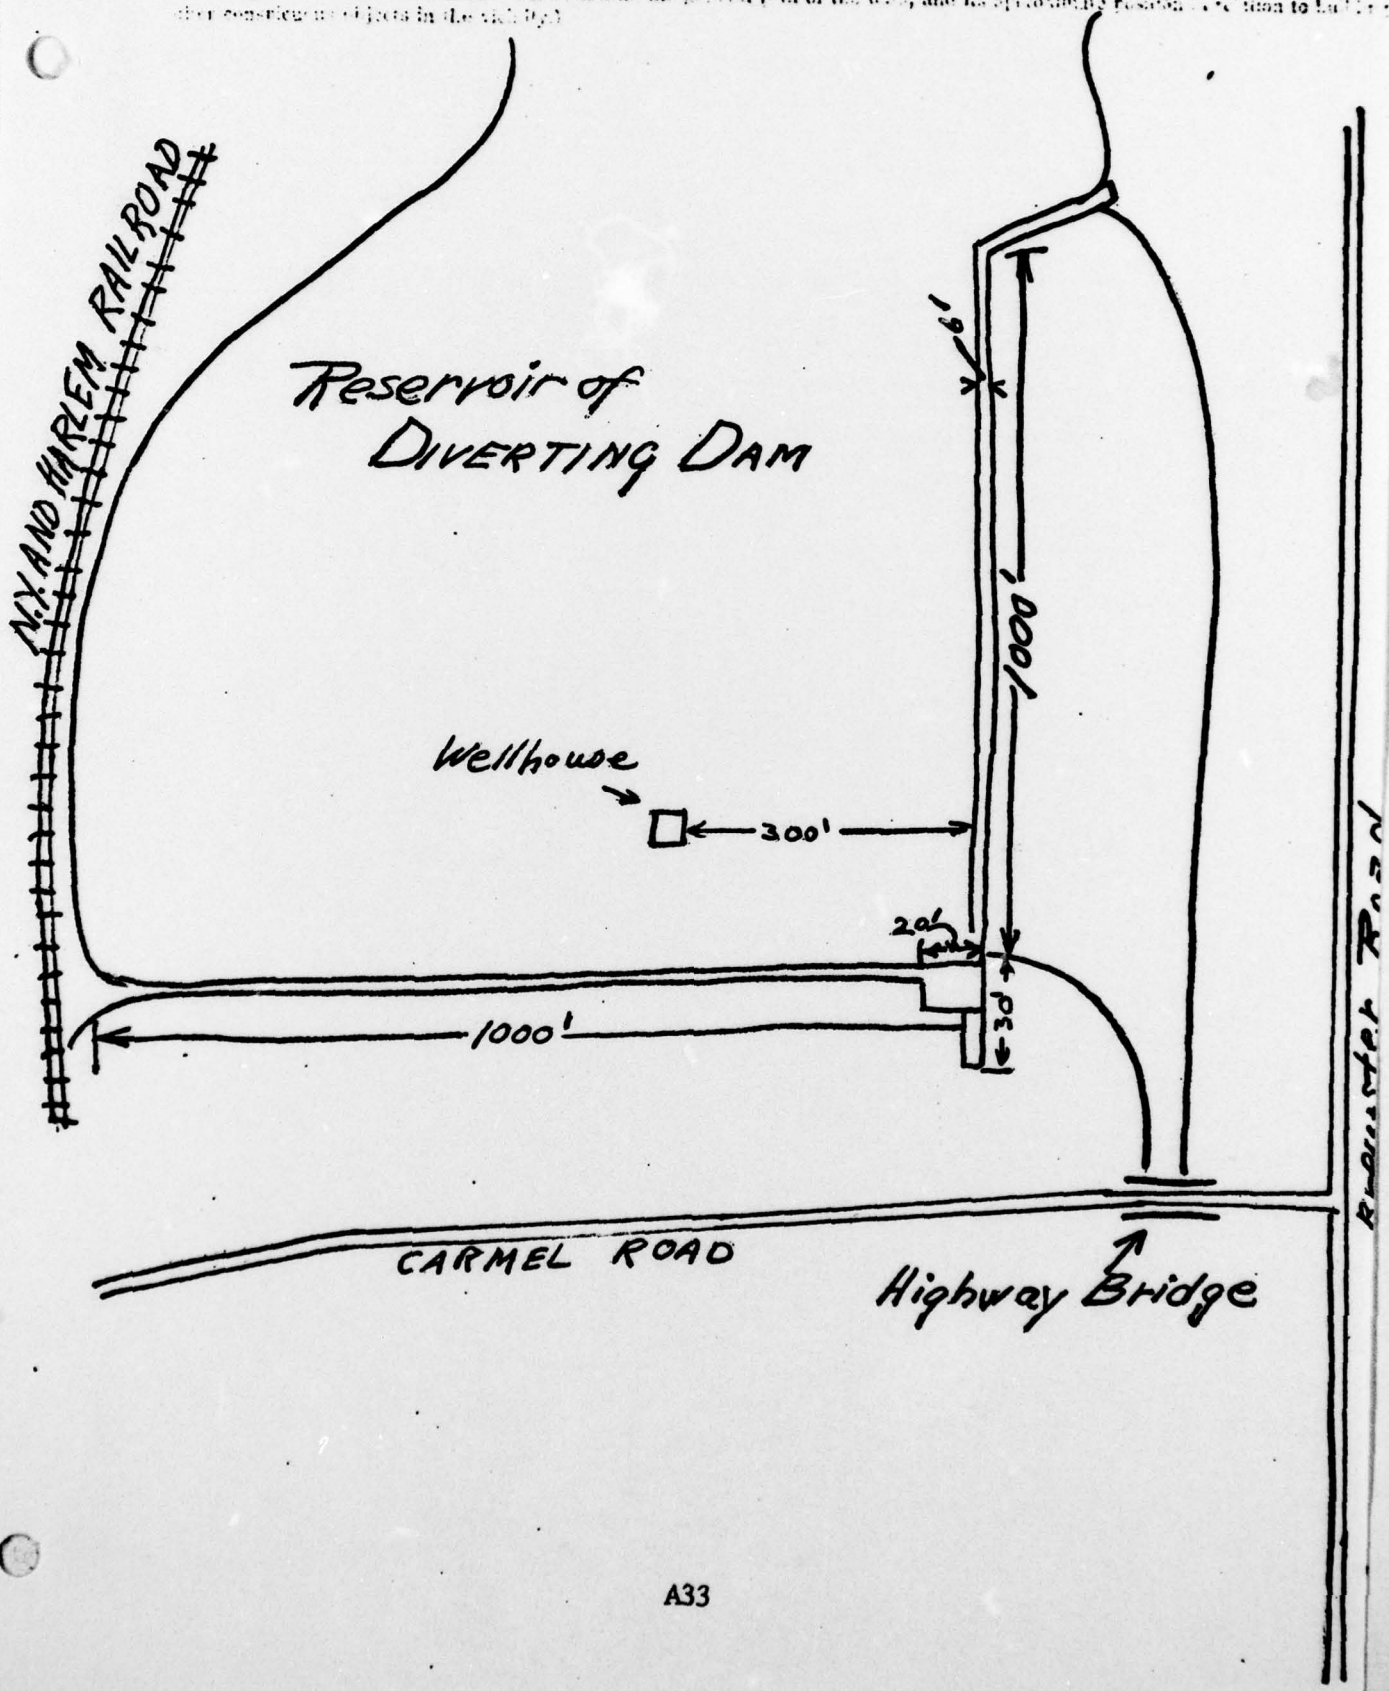 other conspicuous objects in the vicinity.)
N.Y. AND HARLEM RAILROAD
Reservoir of
DIVERTING DAM
6'
1000'
Wellhouse
300'
20'
30'
1000'
CARMEL ROAD
Highway Bridge
Brewster Road
A33